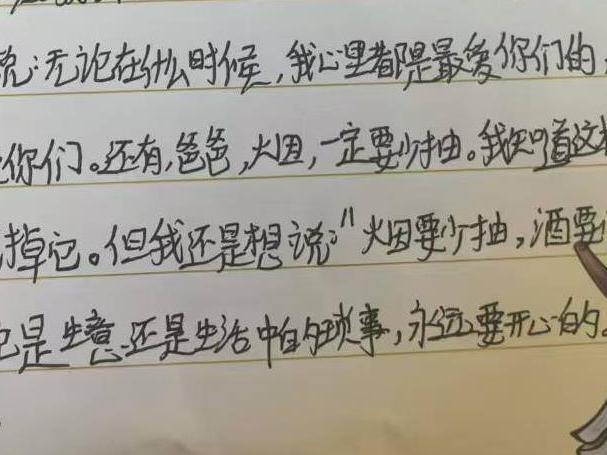 说:无论在什么时候,我心里都是最爱你们的
你们。还有,爸爸,火因,一定要少抽。我知道这
掉它。但我还是想说:"火因要少抽,酒要
是生意还是生活中的琐事,永远要开心的。